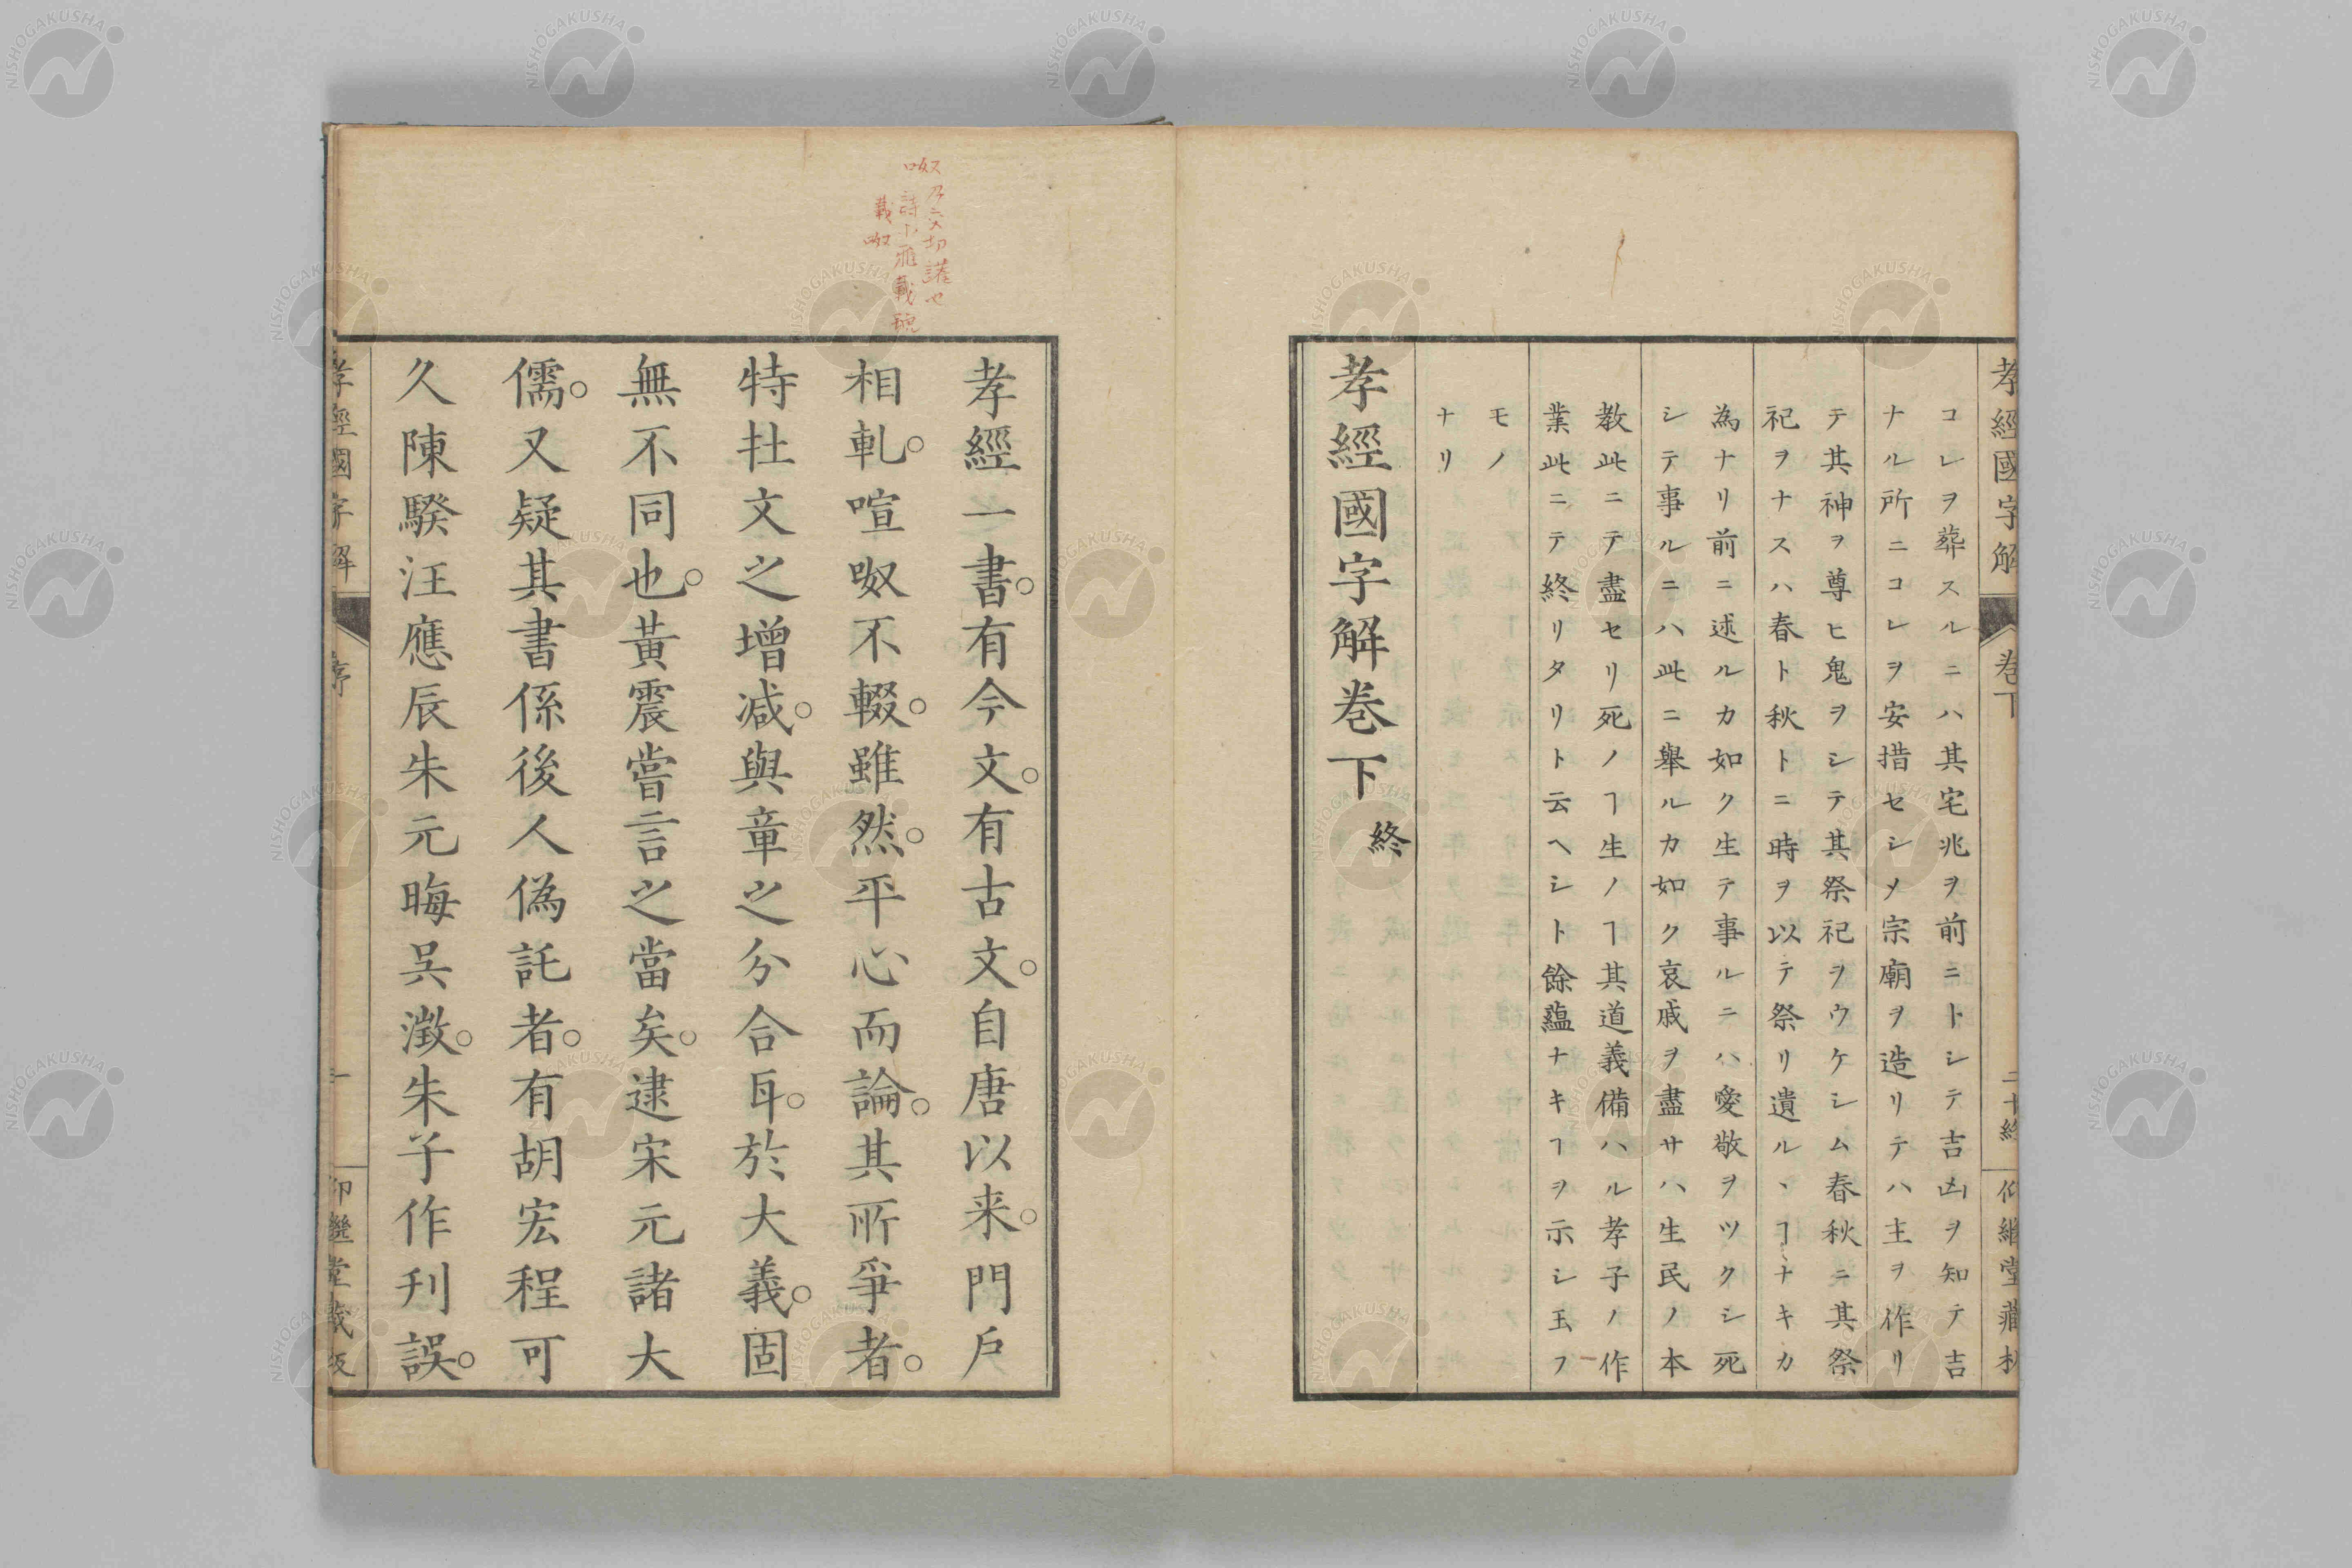 孝經國字解
卷下
二十終
仰継堂藏板
コレヲ葬スルニハ其宅兆ヲ前ニトシテ吉凶ヲ知テ吉
ナル所ニコレヲ安措セシメ宗廟ヲ造リテハ主ヲ作リ
テ其神ヲ尊ヒ鬼ヲシテ其祭祀ヲウケシム春秋ニ其祭
祀ヲナスハ春ト秋トニ時ヲ以テ祭リ遺ルヽヿナキカ
為ナリ前ニ述ルカ如ク生テ事ルニハ愛敬ヲツクシ死
シテ事ルニハ此ニ舉ルカ如ク哀戚ヲ盡サハ生民ノ本
教此ニテ盡セリ死ノヿ生ノヿ其道義備ハル孝子ノ作
業此ニテ終リタリト云ヘシト餘蘊ナキヿヲ示シ玉フ
モノ
ナリ
孝經國字解卷下 終
呶乃交切讙也
詩小雅載號
載呶
孝經一書。有今文。有古文。自唐以来。門戶
相軋。喧呶不輟。雖然。平心而論。其所爭者。
特扗文之增減。與章之分合耳。於大義。固
無不同也。黃震嘗言之當矣。逮宋元諸大
儒。又疑其書係後人偽託者。有胡宏程可
久陳騤汪應辰朱元晦吳澂。朱子作刊誤。
孝經國字解
序
一
仰繼堂藏板
NISHOGAKUSHA